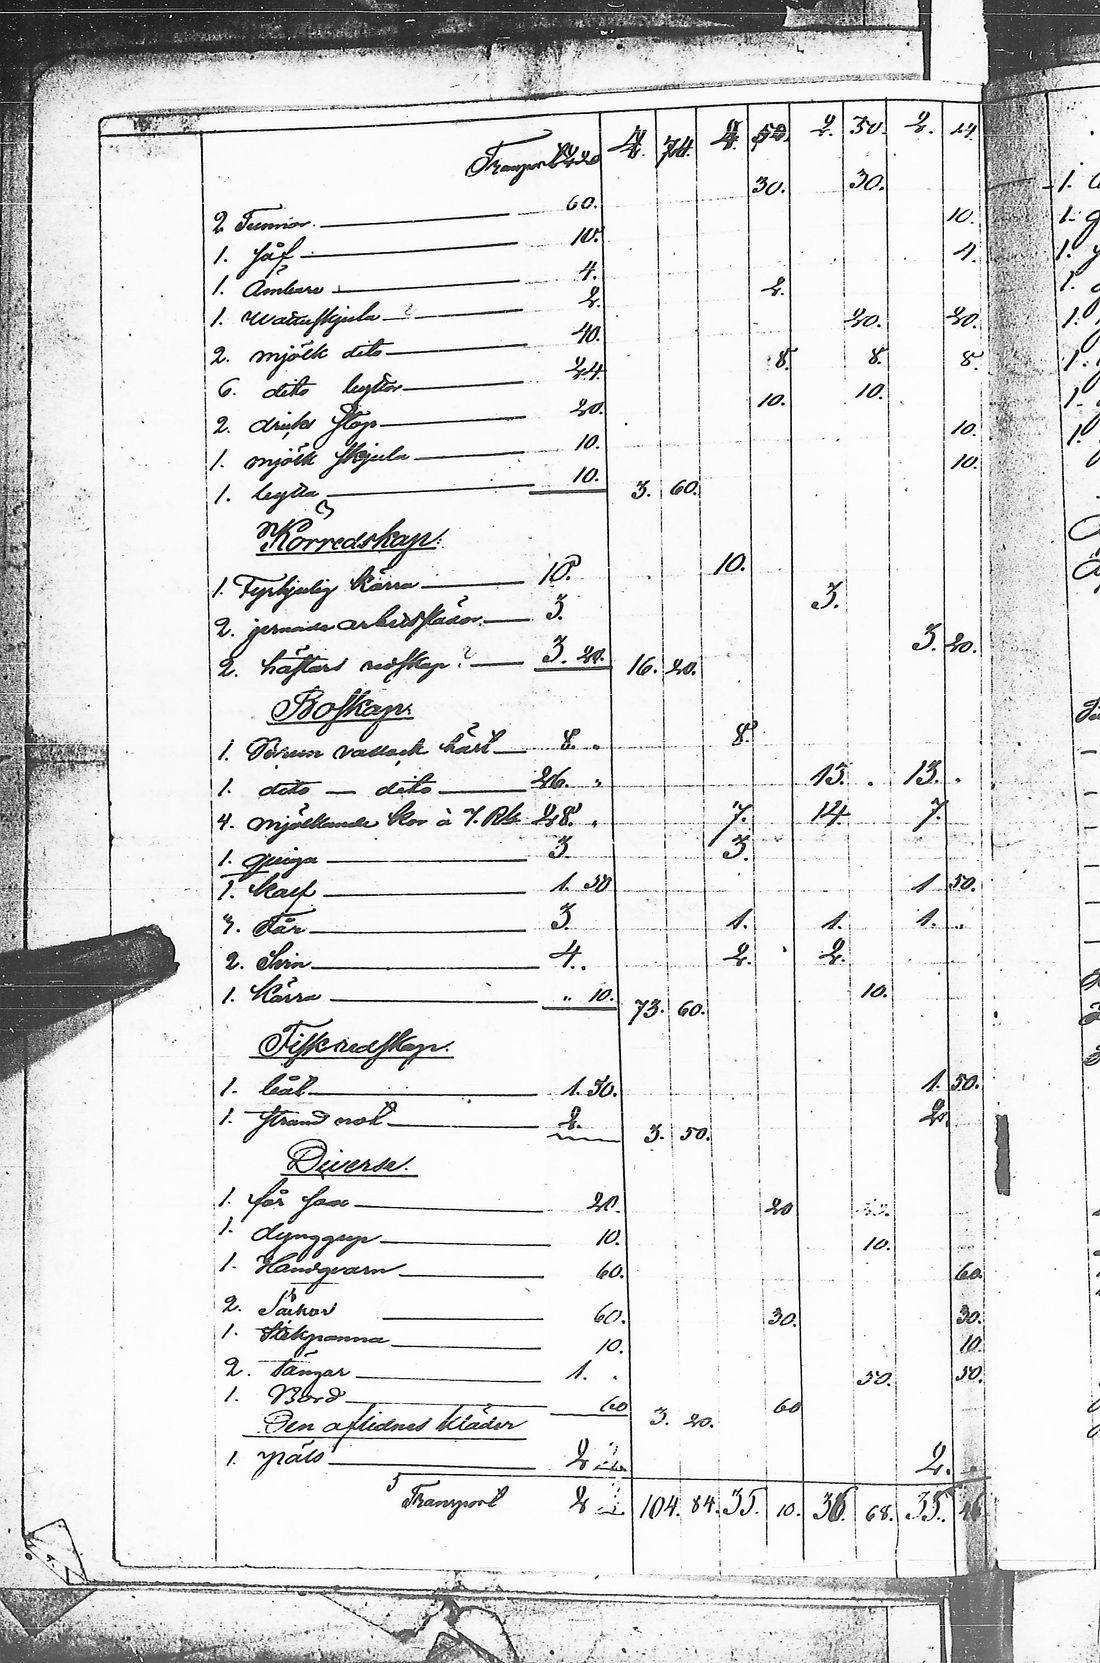 Transport 4. 74. 4. 50. 2. 30. 2. 24.
30. 30.
2 Tunnor. 60. 10.
1. Håf 10. 4.
1. Ämbare 4. 2.
1. Wattuskjula ? 2. 20. 20.
2. mjölk dito 40. 8. 8. 8.
6. dito byttor 24. 10. 10.
2. dricks stop 20. 10.
1. mjölk skjula 10. 10.
1. bytta 10. 3. 60.
Körredskap.
1. Fyrhjulig kärra 10. 10.
2. jernade arbetsslädor 3. 3.
2. hästars redskap ? 3. 20. 16. 20. 3. 20.
Boskap.
1. brun vallack häst 8. " 8.
1. dito — dito 26. " 13. . 13. .
4. mjölkande kor à 7. Rbl 28. " 7. 14. 7.
1. quiga 3. 3.
1. kalf 1. 50 1. 50.
3. Får 3. 1. 1. 1. "
2. Svin 4. . 2. 2.
1. kärra " 10. 73. 60. 10.
Fiskredskap.
1. båt 1. 50. 1. 50.
1. strand not 2. 3. 50. 2.
Diverse.
1. får sax 20. 20
1. dynggrep 10. 10.
1. Handqvarn 60. 60.
2. Säckar 60. 30. 30.
1. Stekpanna 10. 10.
2. tänger 1. . 50. 50.
1. Bord 60 3. 20. 60
Den aflidnes kläder
1. päls 2 2.
Transport 2 104. 84. 35. 10. 36. 68. 35. 46